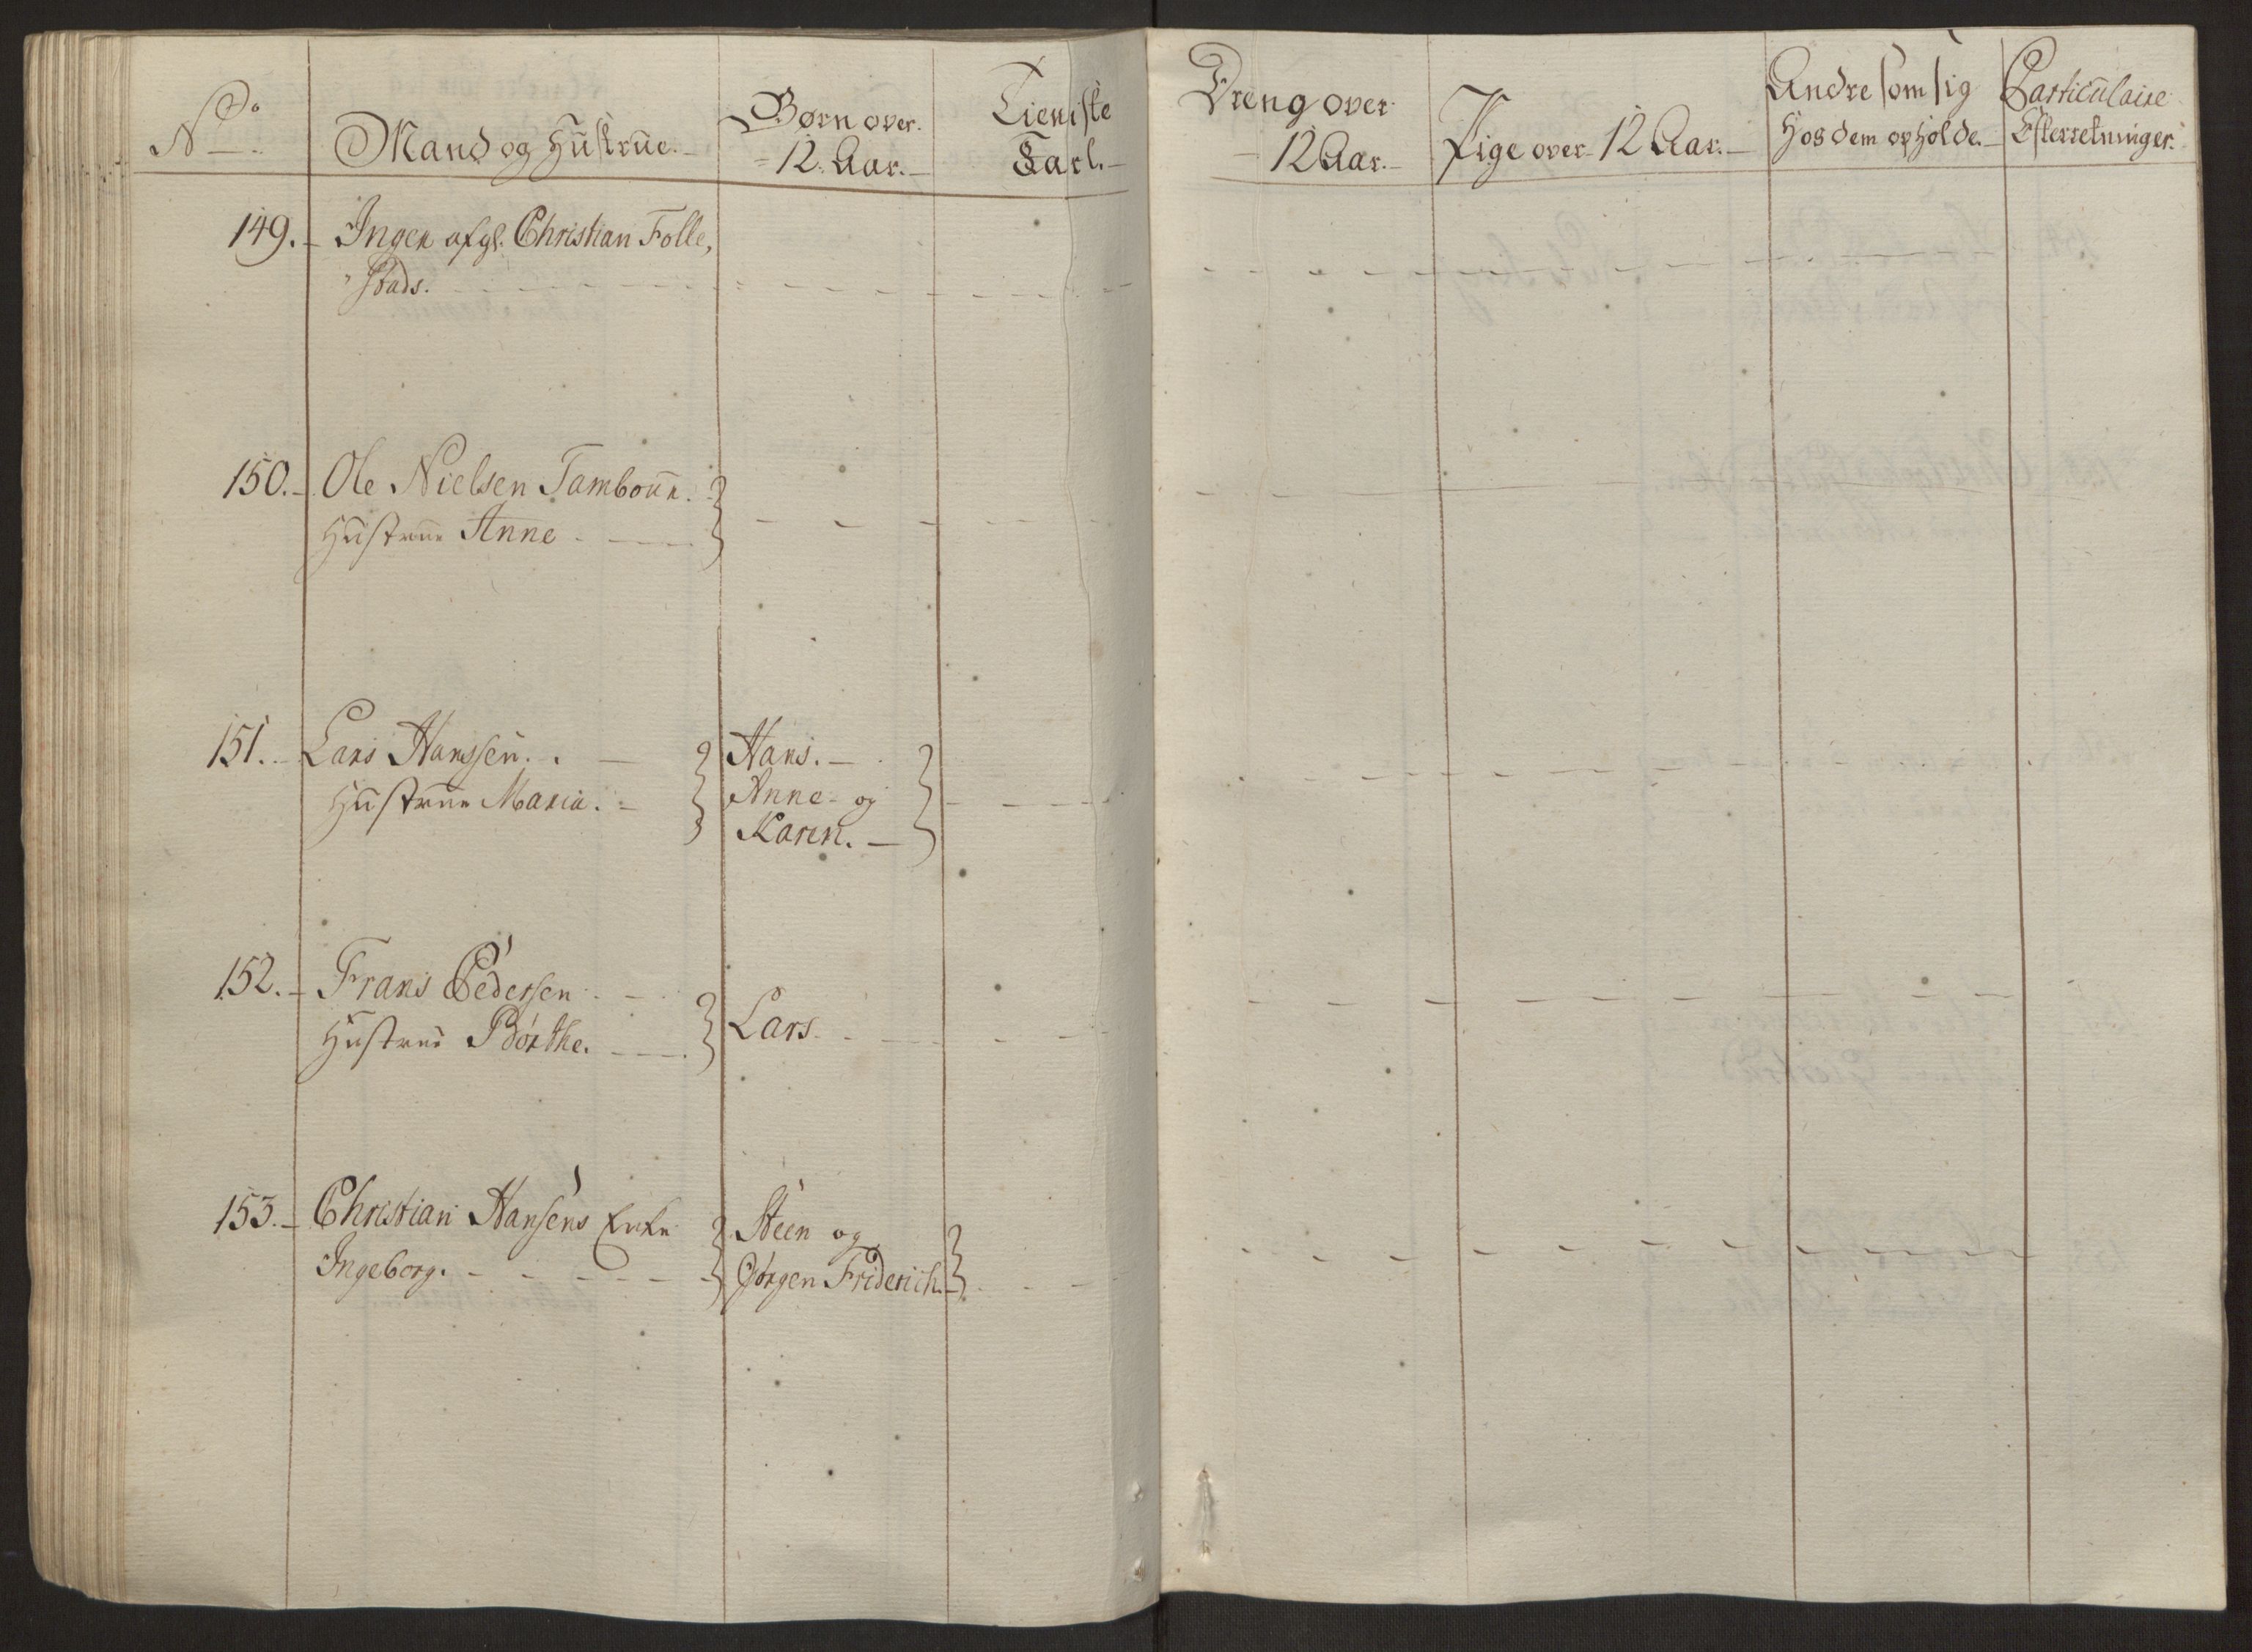 No.
Mand og Hüstrüe.
Børn over
12. Aar.
Tieniste
Karl.
Dreng over
12 Aar.
Pige over 12 Aar.
Andre som sig
Hos dem opholde.
Particülaire
Efterretninger.
149. Ingen afgl. Christian Folle,
stads.
150. Ole Nielsen Tamboür.
Hüstrüe Anne
151. Lars Hanssen.
Hüstrüe Maria.
Hans.
Anne og
Karen.
152. Frans Pedersen
Hüstrüe Börthe.
Lars
153. Christian Hansens Enke
Ingeborg.
Steen og
Jörgen Friderich.